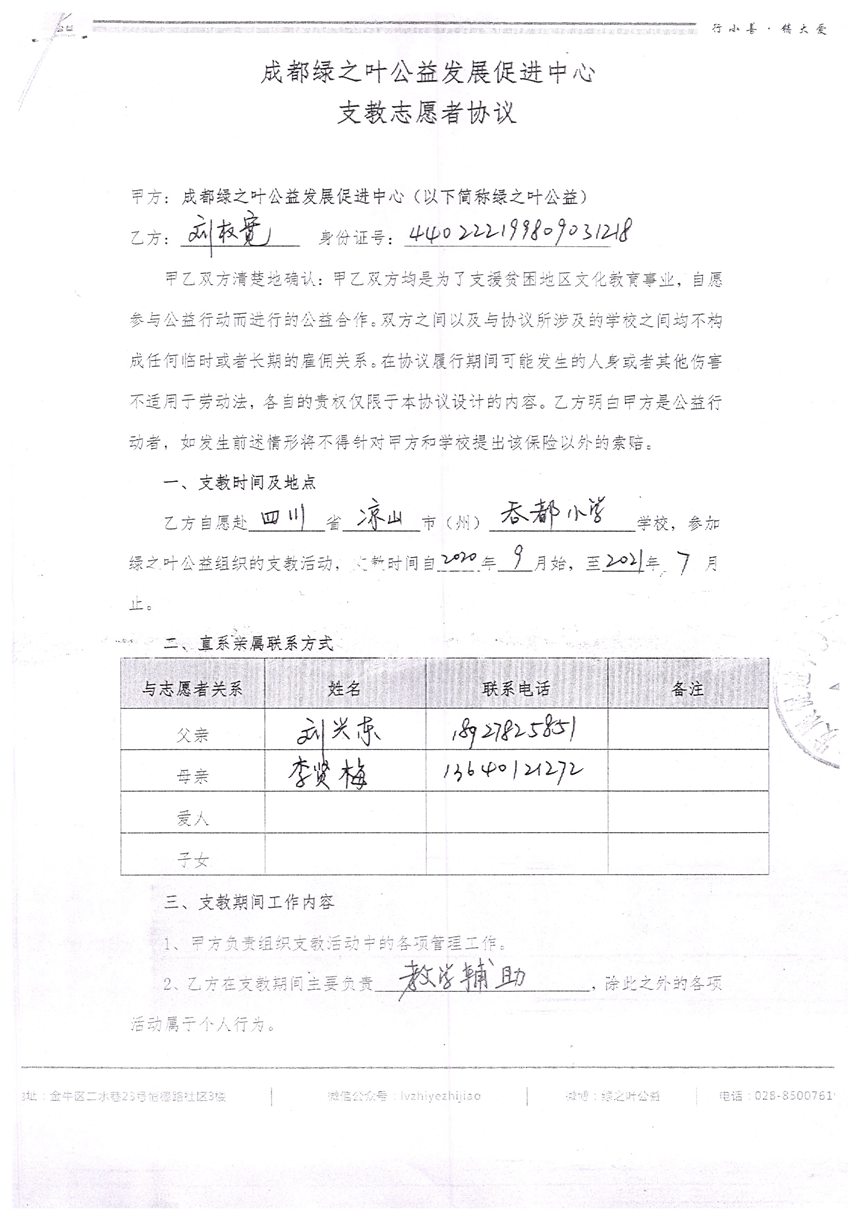 行小善·铸大爱
成都绿之叶公益发展促进中心
支教志愿者协议
甲方：成都绿之叶公益发展促进中心（以下简称绿之叶公益）
乙方：刘权宽 身份证号：440222199809031218
甲乙双方清楚地确认：甲乙双方均是为了支援贫困地区文化教育事业，自愿
参与公益行动而进行的公益合作。双方之间以及与协议所涉及的学校之间均不构
成任何临时或者长期的雇佣关系。在协议履行期间可能发生的人身或者其他伤害
不适用于劳动法，各自的责权仅限于本协议设计的内容。乙方明白甲方是公益行
动者，如发生前述情形将不得针对甲方和学校提出该保险以外的索赔。
一、支教时间及地点
乙方自愿赴四川省凉山市（州）吞都小学学校，参加
绿之叶公益组织的支教活动，支教时间自2020年9月始，至2021年7月
止。
二、直系亲属联系方式
与志愿者关系 姓名 联系电话 备注
父亲 刘兴东 18927825851
母亲 李贤梅 13640121272
爱人
子女
三、支教期间工作内容
1、甲方负责组织支教活动中的各项管理工作。
2、乙方在支教期间主要负责教学辅助，除此之外的各项
活动属于个人行为。
址：金牛区二水巷23号怡德路社区3楼 微信公众号：lvzhiyezhijiao 微博：绿之叶公益 电话：028-8500761